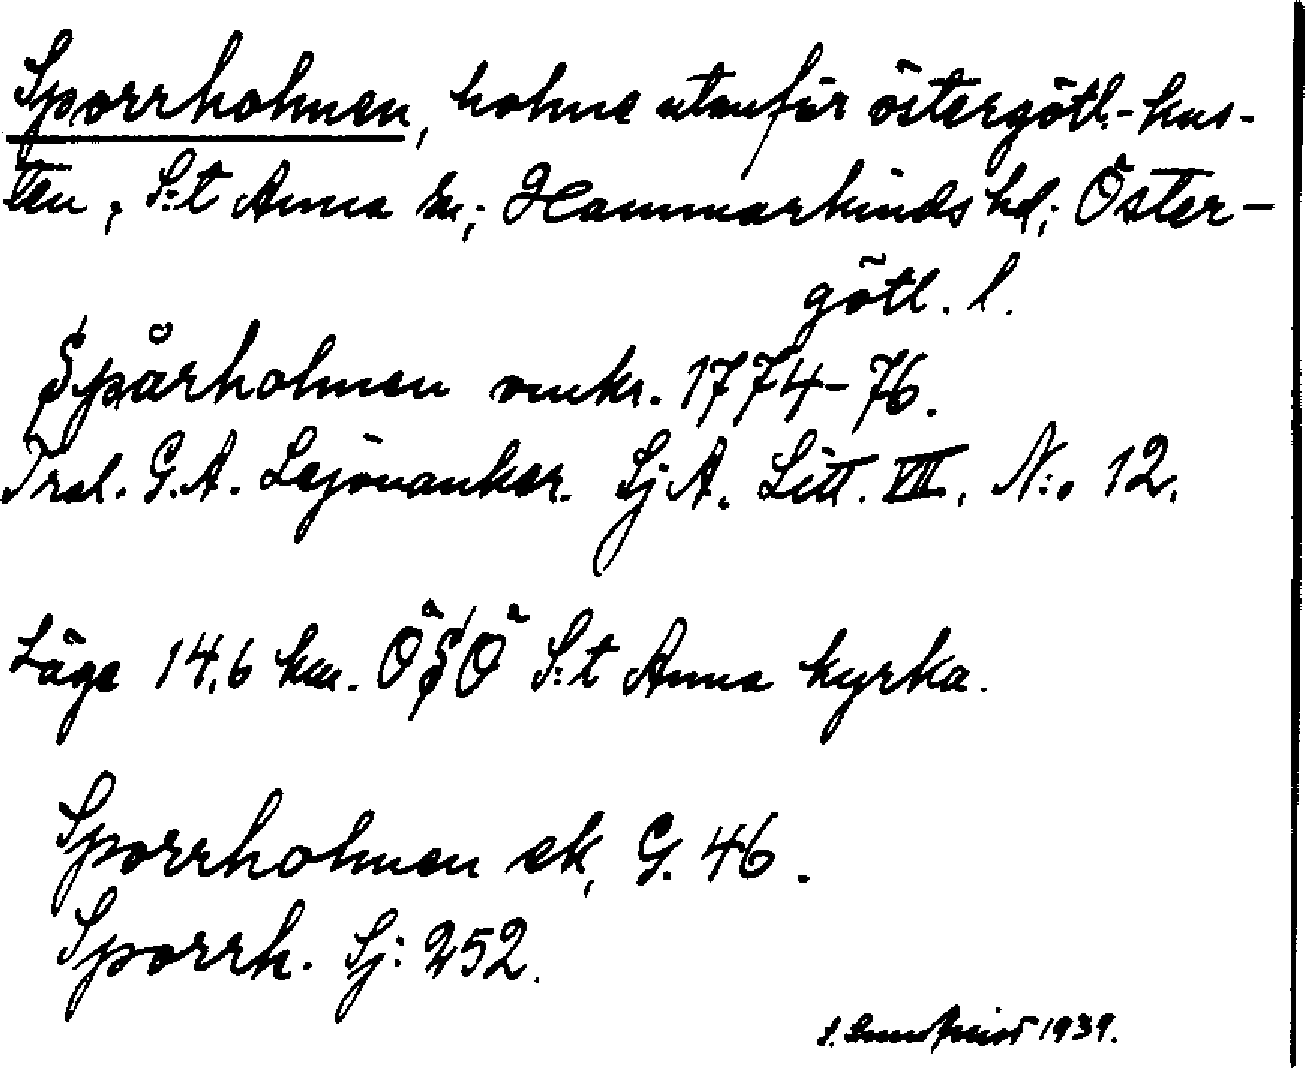 Sporrholmen, holme utanför östergötl.-kus-
ten, S:t Anna sn; Hammarkinds hd; Öster-
götl. l.
Spårholmen omkr. 1774-76.
Trol. G.A. Lejonanker. Sj.A. Litt. VII. N:o 12.
Läge 14,6 km. ÖSÖ S:t Anna kyrka.
Sporrholmen ek, G. 46.
Sporrh. Sj: 252.
1939.